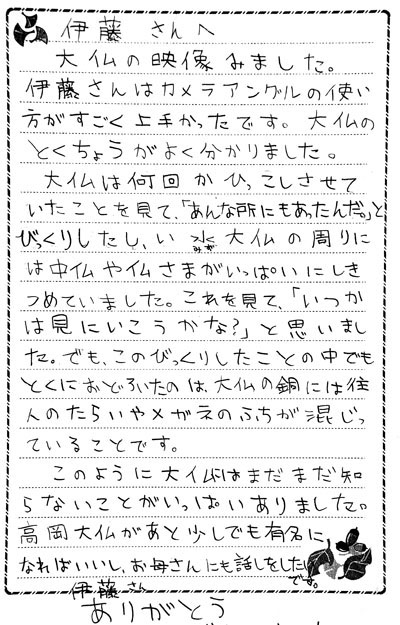 伊藤 さんへ
大仏の映像みました。
伊藤さんはカメラアングルの使い
方がすごく上手かったです。大仏の
とくちょうがよく分かりました。
大仏は何回かひっこしさせて
いたことを見て、「あんな所にもあったんだ。」と
びっくりしたし、い 水 大仏の周りに
みず
は中仏や仏さまがいっぱいにしき
つめていました。これを見て、「いつか
は見にいこうかな?」と思いまし
た。でも、このびっくりしたことの中でも
とくにおどろいたのは、大仏の銅には住
人のたらいやメガネのふちが混じっ
ていることです。
このように大仏はまだまだ知
らないことがいっぱいありました。
高岡大仏があと少しでも有名に
なればいいし、お母さんにも話しをしたい
です。
伊藤さん
ありがとう